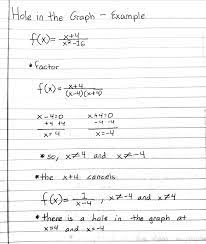 Hole in the Graph - Example
f(x) = x+4 / x²-16
• factor
f(x) = x+4 / (x-4)(x+4)
x-4=0    x+4=0
+4 +4    -4 -4
x=4    x=-4
• so, x≠4 and x≠-4
• the x+4 cancels
f(x) = 1 / x-4, x≠-4 and x≠4
• there is a hole in the graph at
x=4 and x=-4